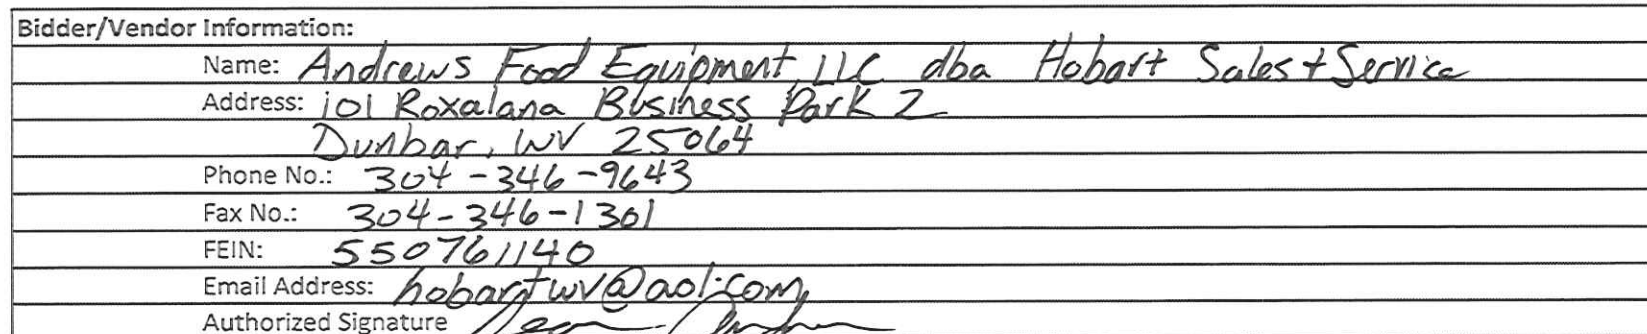 Bidder/Vendor Information:
Name: Andrews Food Equipment, LLC dba Hobart Sales + Service
Address: 101 Roxalana Business Park 2
Dunbar, WV 25064
Phone No.: 304-346-9643
Fax No.: 304-346-1301
FEIN: 550761140
Email Address: hobartwv@aol.com
Authorized Signature